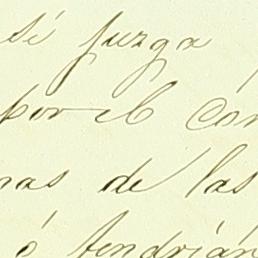 sé juzga
por el con
nas de las
ó tendrían